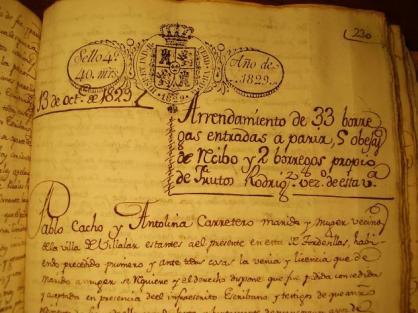 230
Sello 4º
40. mrs.
Año de
1829.
HISPANIAR. REX
1829
13 de oct.e de 1829
Arrendamiento de 33 borre
gas entradas a paria, 5 obejas
de Ncibo y 2 borregos propio
de Frutos Rodrig.z vez. de esta v.a
Pablo Cacho y Antolina Carretero marido y muger vecinos
de la villa de Villalar estantes a el presente en esta de Tordesillas, habi
endo precedido primero y ante todas cosas la venia y licencia que de
marido a muger se requiere y el derecho dispone que fue pedida concedida
y aceptada en presencia de el infraescrito Escribano y testigos de que